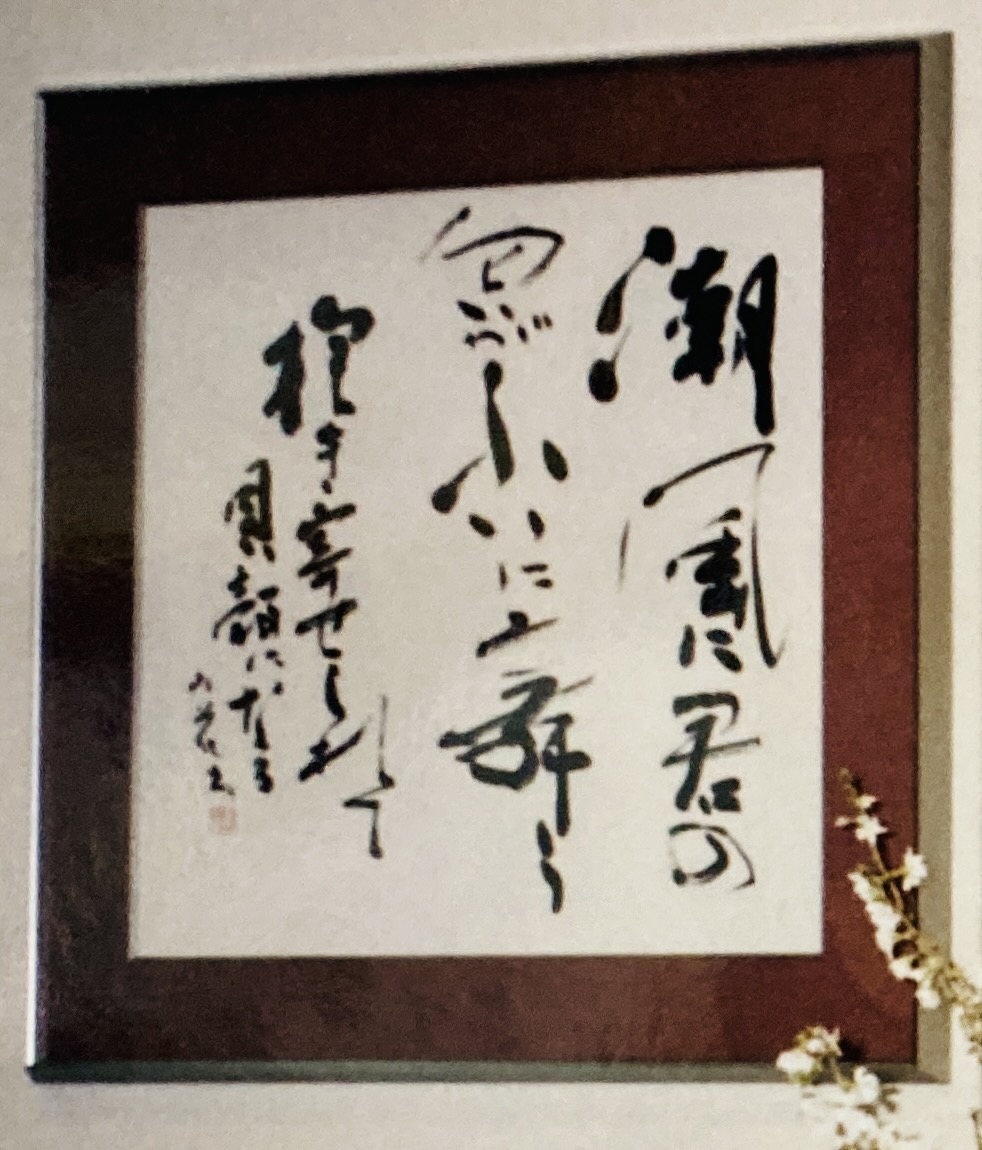 潮風に君の
匂いがふいに舞う
抱き寄せられて
貝殻になる